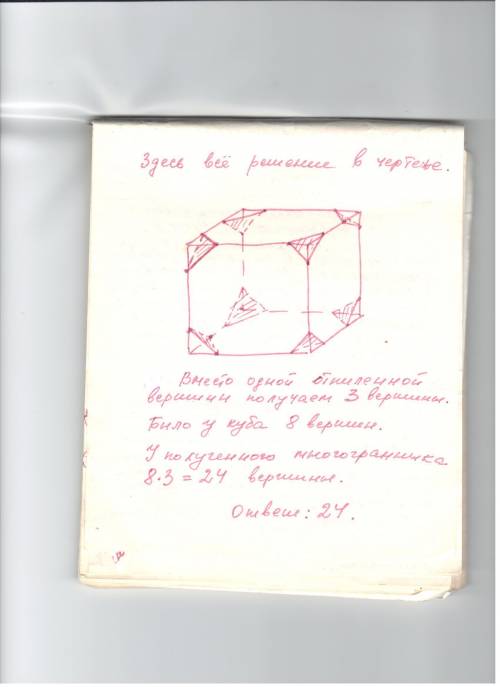 Здесь всё решение в чертеже.
Вместо одной отпиленной
вершин получаем 3 вершины.
Было у куба 8 вершин.
У полученного многогранника
8·3 = 24 вершины.
Ответ: 24.